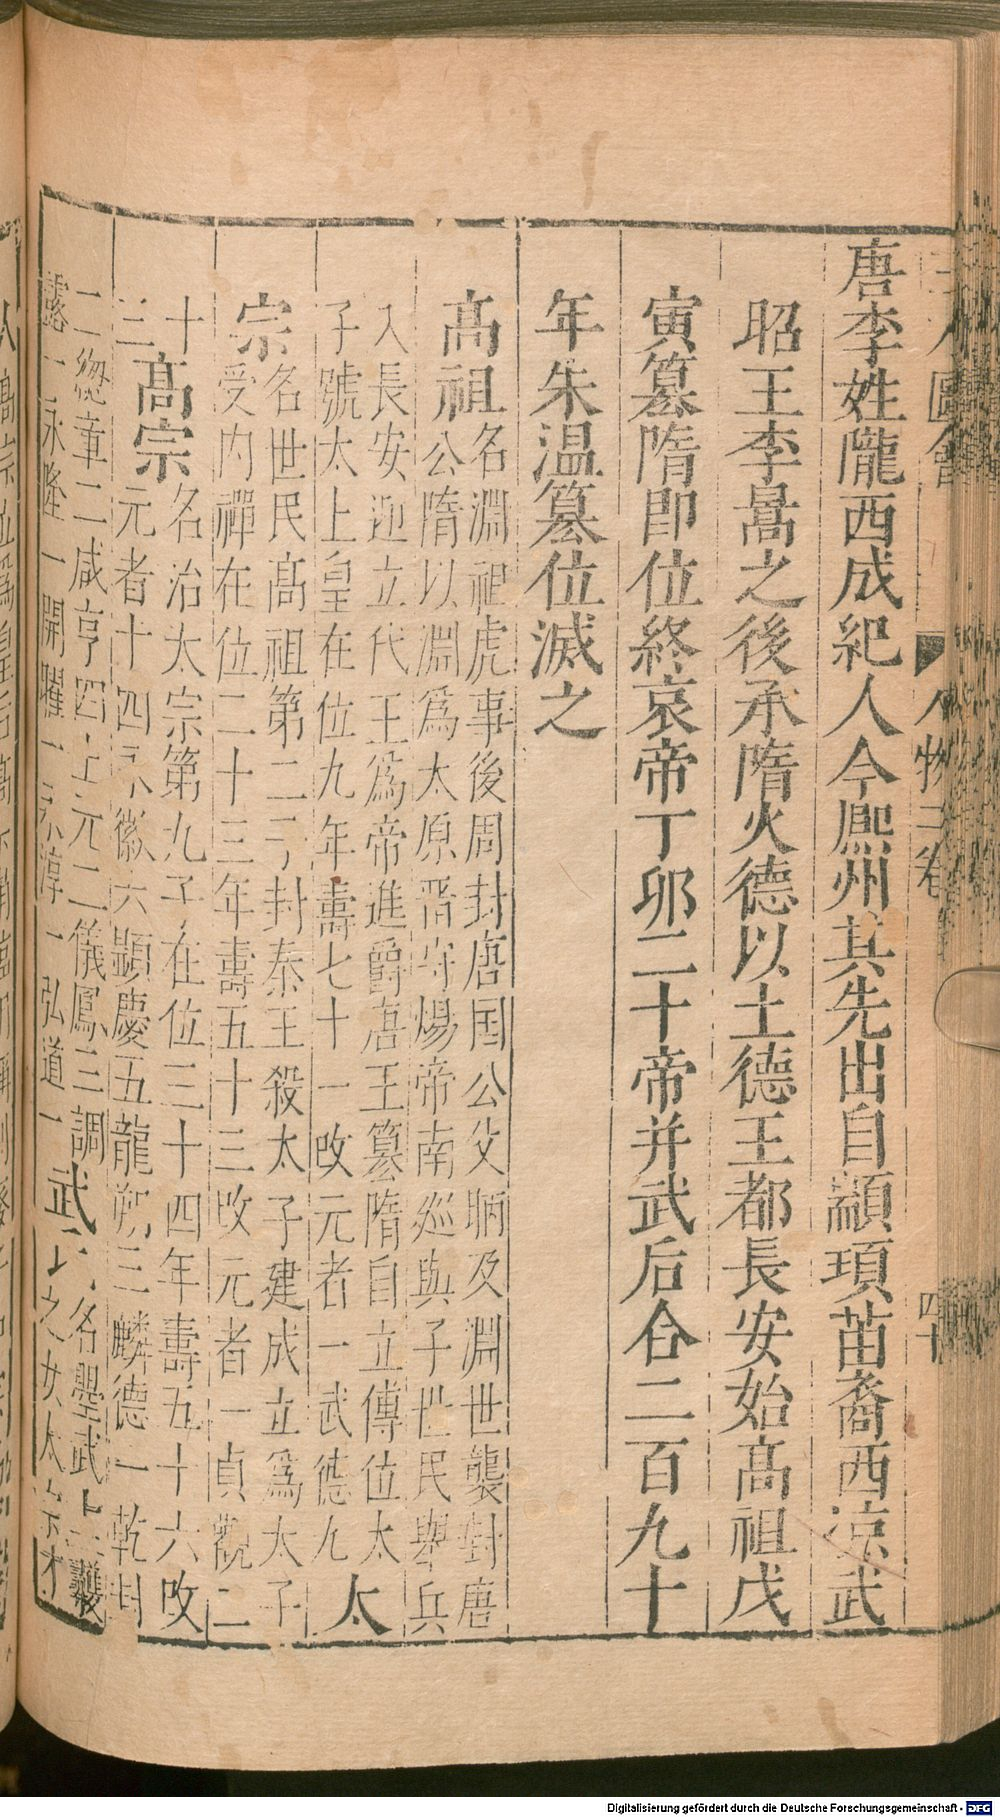 三才圖會 人物三卷 四十
唐李姓隴西成紀人今熈州其先出自顓頊苗裔西涼武
昭王李暠之後承隋火德以土德王都長安始髙祖戊
寅篡隋即位終哀帝丁卯二十帝并武后合二百九十
年朱温篡位滅之
髙祖 名淵祖虎事後周封唐国公父昞及淵世襲封唐
公隋以淵爲太原畱守煬帝南廵與子世民舉兵
入長安迎立代王爲帝進爵唐王篡隋自立傳位太
子號太上皇在位九年壽七十一攺元者一武德九 太
宗 名世民髙祖第二子封秦王殺太子建成立爲太子
受内禪在位二十三年壽五十三攺元者一貞觀二
十
三 髙宗 名治太宗第九子在位三十四年壽五十六攺
元者十四永徽六顯慶五龍朔三麟德一乾封
二緫章二咸亨四上元二儀鳳三調
露一永隆一開耀一永淳一弘道一 武 名曌武士彠
之女太宗才
Digitalisierung gefördert durch die Deutsche Forschungsgemeinschaft - DFG